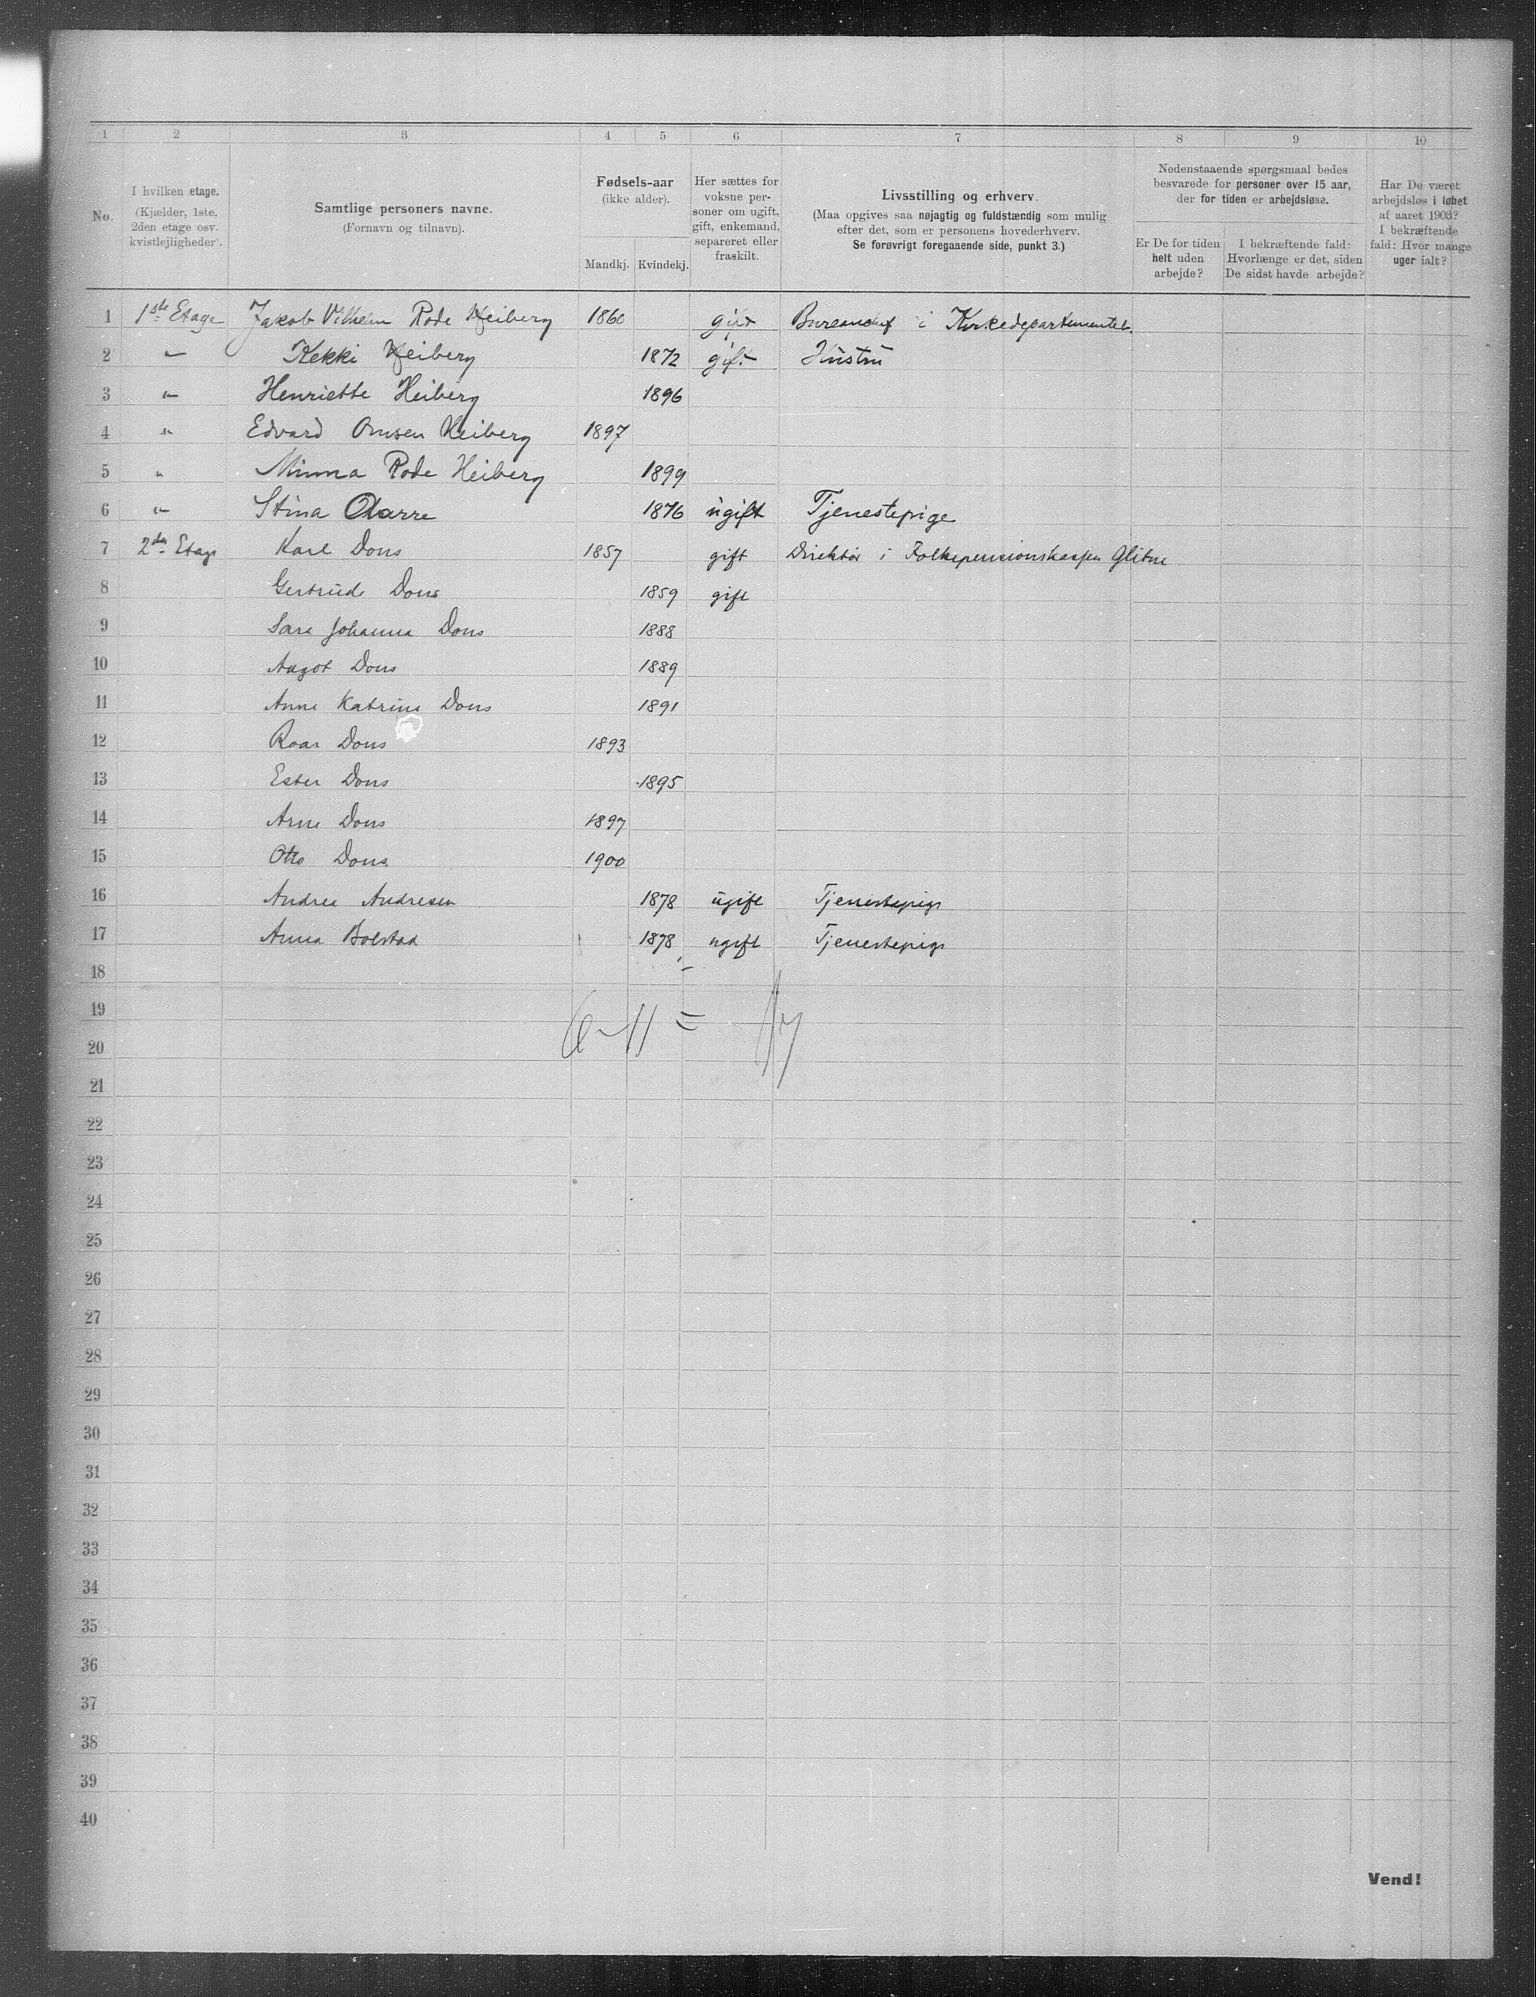 1 2 3 4 5 6 7 8 9 10
No.
I hvilken etage.
(Kjælder, 1ste,
2den etage osv.
kvistlejligheder).
Samtlige personers navne.
(Fornavn og tilnavn).
Fødsels-aar
(ikke alder).
Mandkj. Kvindekj.
Her sættes for
voksne per-
soner om ugift,
gift, enkemand,
separeret eller
fraskilt.
Livsstilling og erhverv.
(Maa opgives saa nøjagtig og fuldstændig som mulig
efter det, som er personens hovederhverv.
Se forøvrigt foregaaende side, punkt 3.)
Nedenstaaende spørgsmaal bedes
besvarede for personer over 15 aar,
der for tiden er arbejdsløse.
Er De for tiden
helt uden
arbejde?
I bekræftende fald:
Hvorlænge er det, siden
De sidst havde arbejde?
Har De været
arbejdsløs i løbet
af aaret 1903?
I bekræftende
fald: Hvor mange
uger ialt?
1 1ste Etage Jakob Vilhelm Rode Heiberg 1860 gift Bureauchef i Kirkedepartementet
2 " Kekki Heiberg 1872 gift Hustru
3 " Henriette Heiberg 1896
4 " Edvard Omsen Heiberg 1897
5 " Minna Rode Heiberg 1899
6 " Stina 1876 ugift Tjenestepige
7 2den Etage Karl Dons 1857 gift Direktør i Folkepensionskassen Glitne
8 Gertrude Dons 1859 gift
9 Sara Johanna Dons 1888
10 Aagot Dons 1889
11 Anne Katrine Dons 1891
12 Roar Dons 1893
13 Ester Dons 1895
14 Arne Dons 1897
15 Otto Dons 1900
16 Andrea Andresen 1878 ugift Tjenestepige
17 Anna Bolstad 1878 ugift Tjenestepige
18
19
6-11 = 17
20
21
22
23
24
25
26
27
28
29
30
31
32
33
34
35
36
37
38
39
40
Vend!